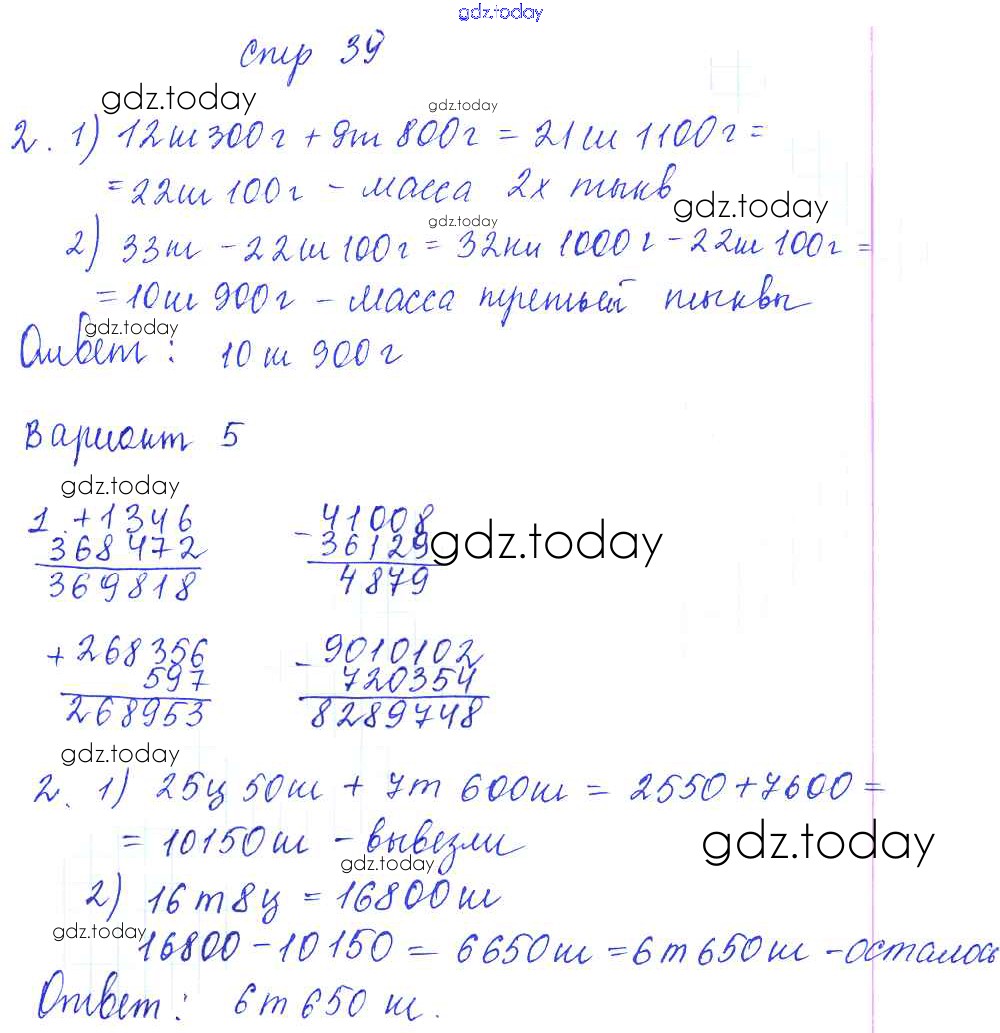 gdz.today
Стр 39
gdz.today gdz.today
2. 1) 12кг 300г + 9кг 800г = 21кг 1100г =
= 22кг 100г - масса 2х тыкв
gdz.today gdz.today
2) 33кг - 22кг 100г = 32кг 1000г - 22кг 100г =
= 10кг 900г - масса третьей тыквы
gdz.today
Ответ: 10кг 900г
Вариант 5
gdz.today
1. +1346 - 41008
368472 36129 gdz.today
369818 4879
+ 268356 - 9010102
597 720354
268953 8289748
gdz.today
2. 1) 25ц 50кг + 7т 600кг = 2550 + 7600 =
= 10150кг - вывезли gdz.today
gdz.today
2) 16т 8ц = 16800кг
gdz.today
16800 - 10150 = 6650кг = 6т 650кг - осталось
Ответ: 6т 650кг.